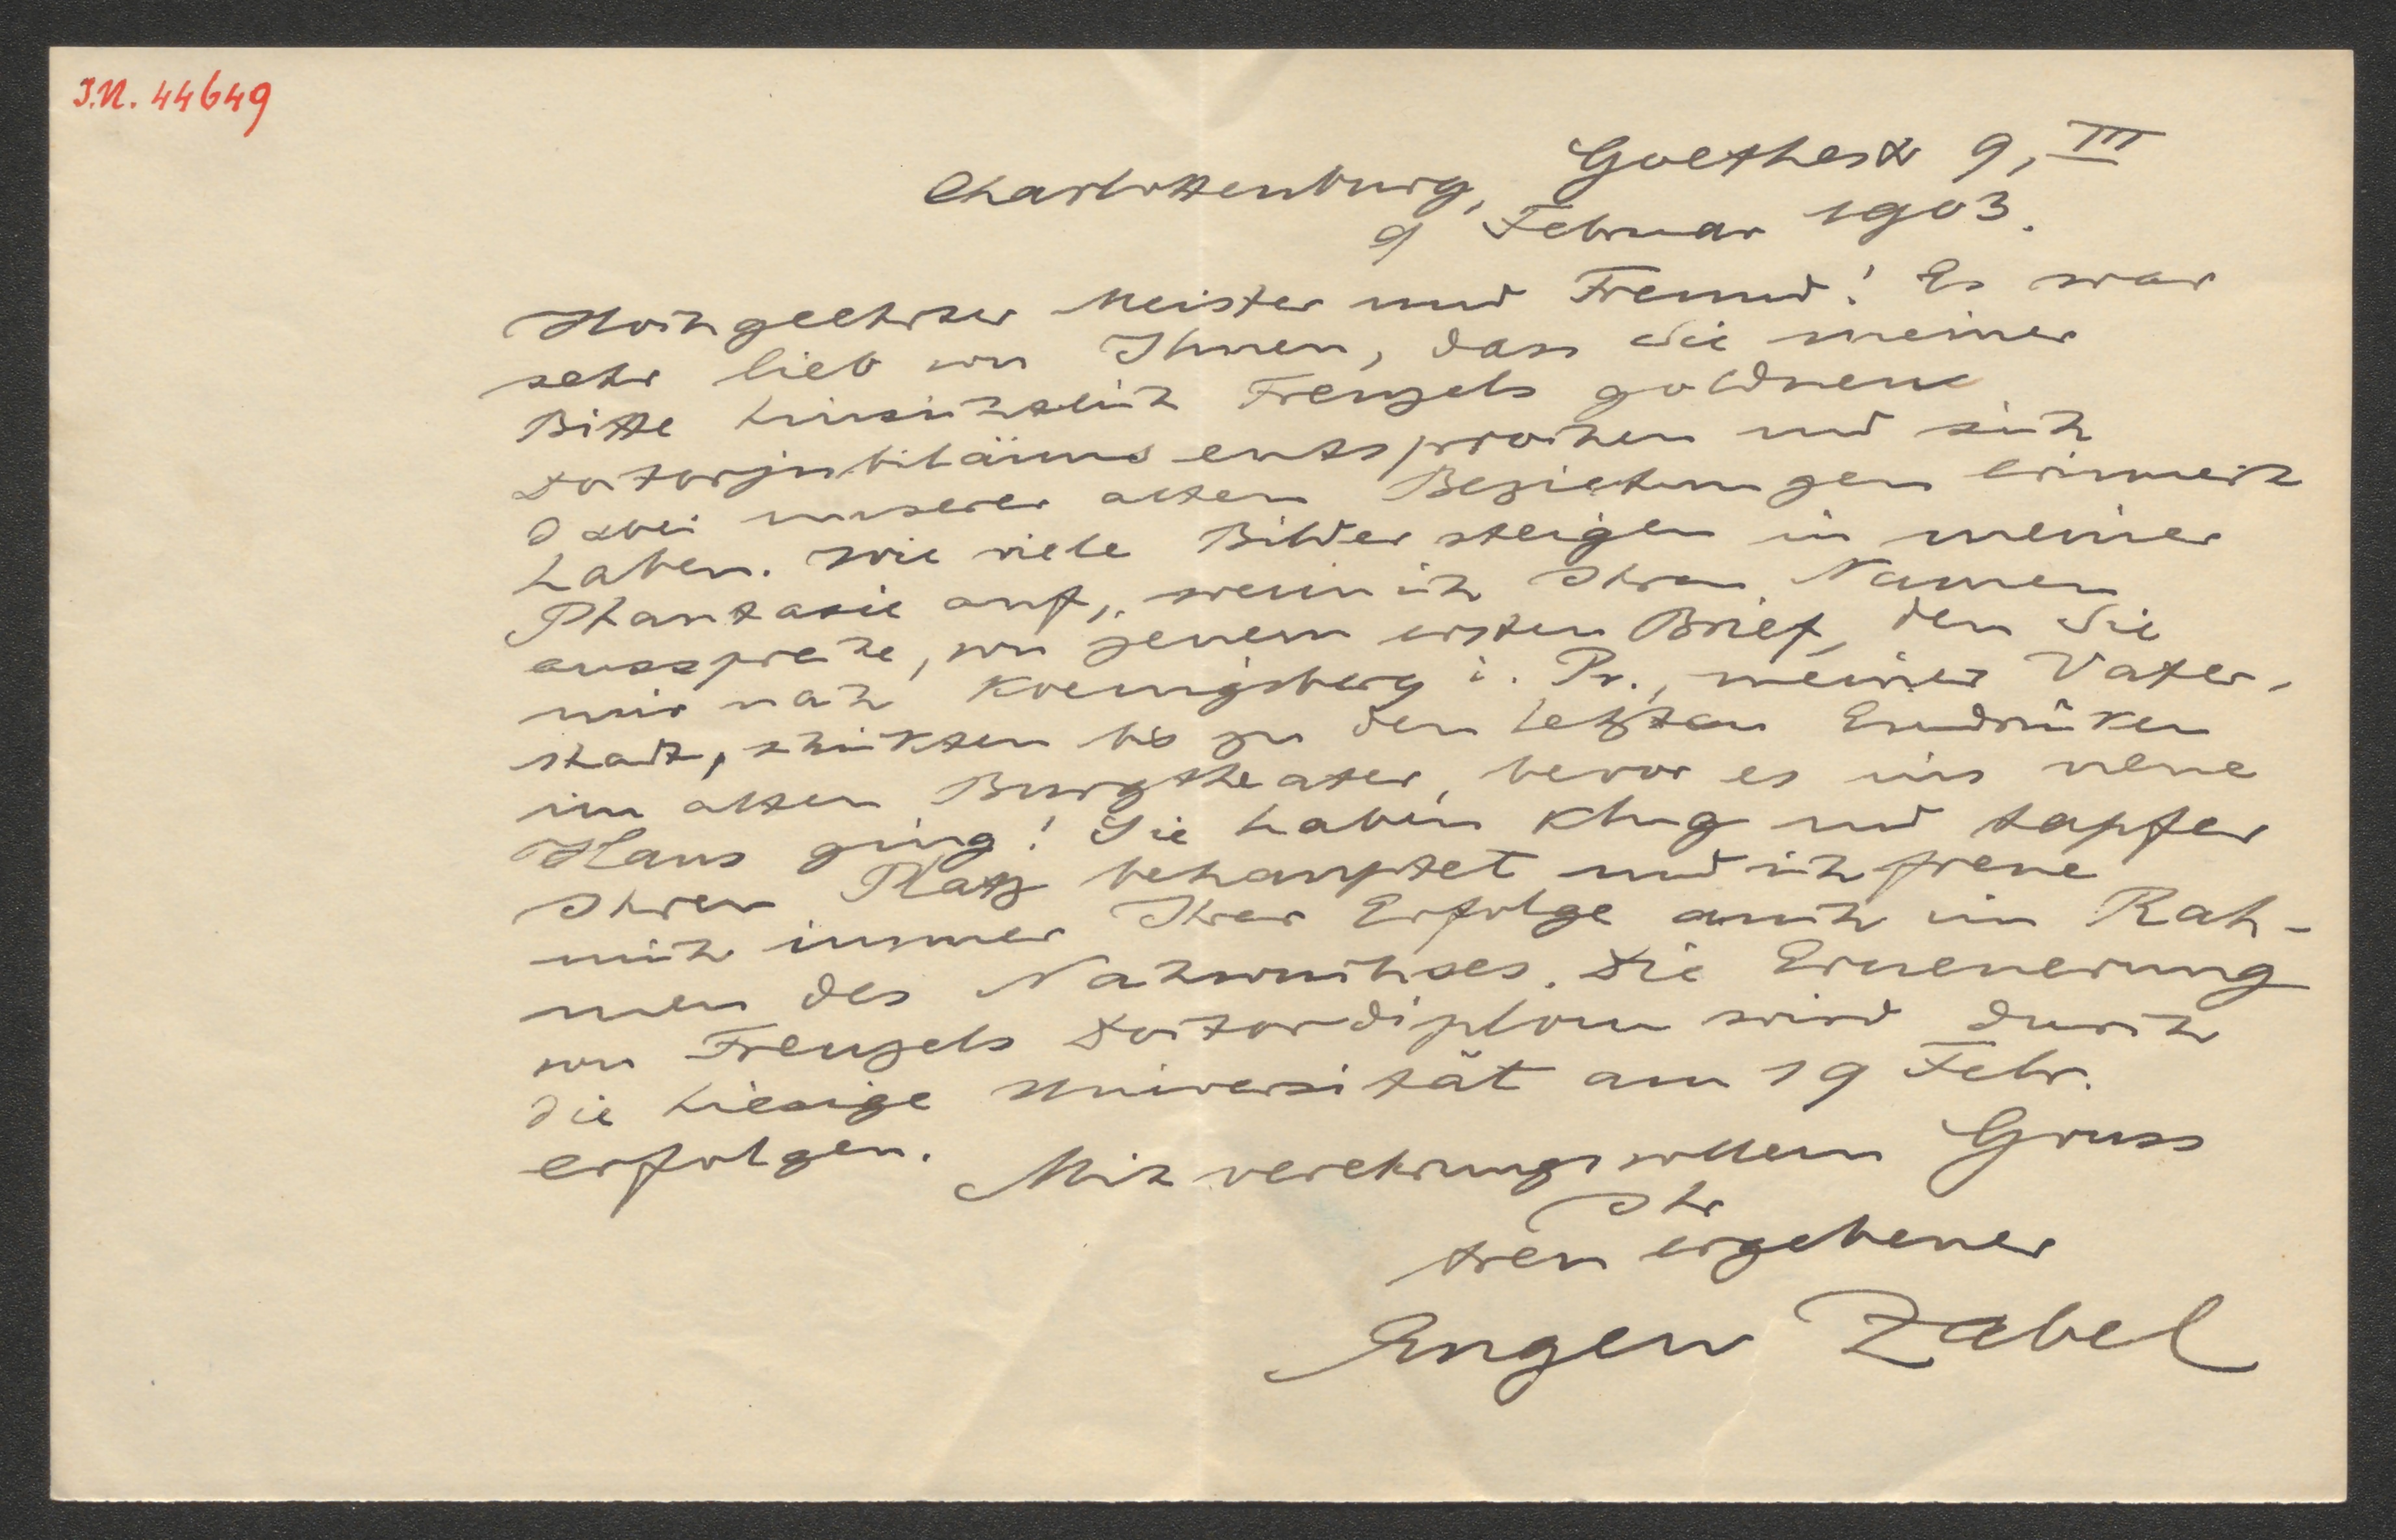 I.N. 44649
Goethestr 9, III
Charlottenburg,
9 Februar 1903.
Hochgeehrter Meister und Freund! Es war
sehr lieb von Ihnen, dass Sie meiner
Bitte hinsichtlich Frenzels goldnem
Doctorjubiläums entsprochen und sich
dabei unserer alten Beziehungen erinnert
haben. Wie viele Bilder steigen in meiner
Phantasie auf, wenn ich Ihren Namen
ausspreche, von jenem ersten Brief, den Sie
mir nach Koenigsberg i. Pr., meiner Vater-
stadt, schickten bis zu den letzten Eindrücken
im alten Burgtheater, bevor es ins neue
Haus ging! Sie haben klug und tapfer
Ihren Platz behauptet und ich freue
mich immer Ihrer Erfolge auch im Rah-
men des Nachwuchses. Die Erneuerung
von Frenzels Doctordiplom wird durch
die hiesige Universität am 19 Febr.
erfolgen.
Mit verehrungsvollem Gruss
Ihr
treu ergebener
Eugen Zabel